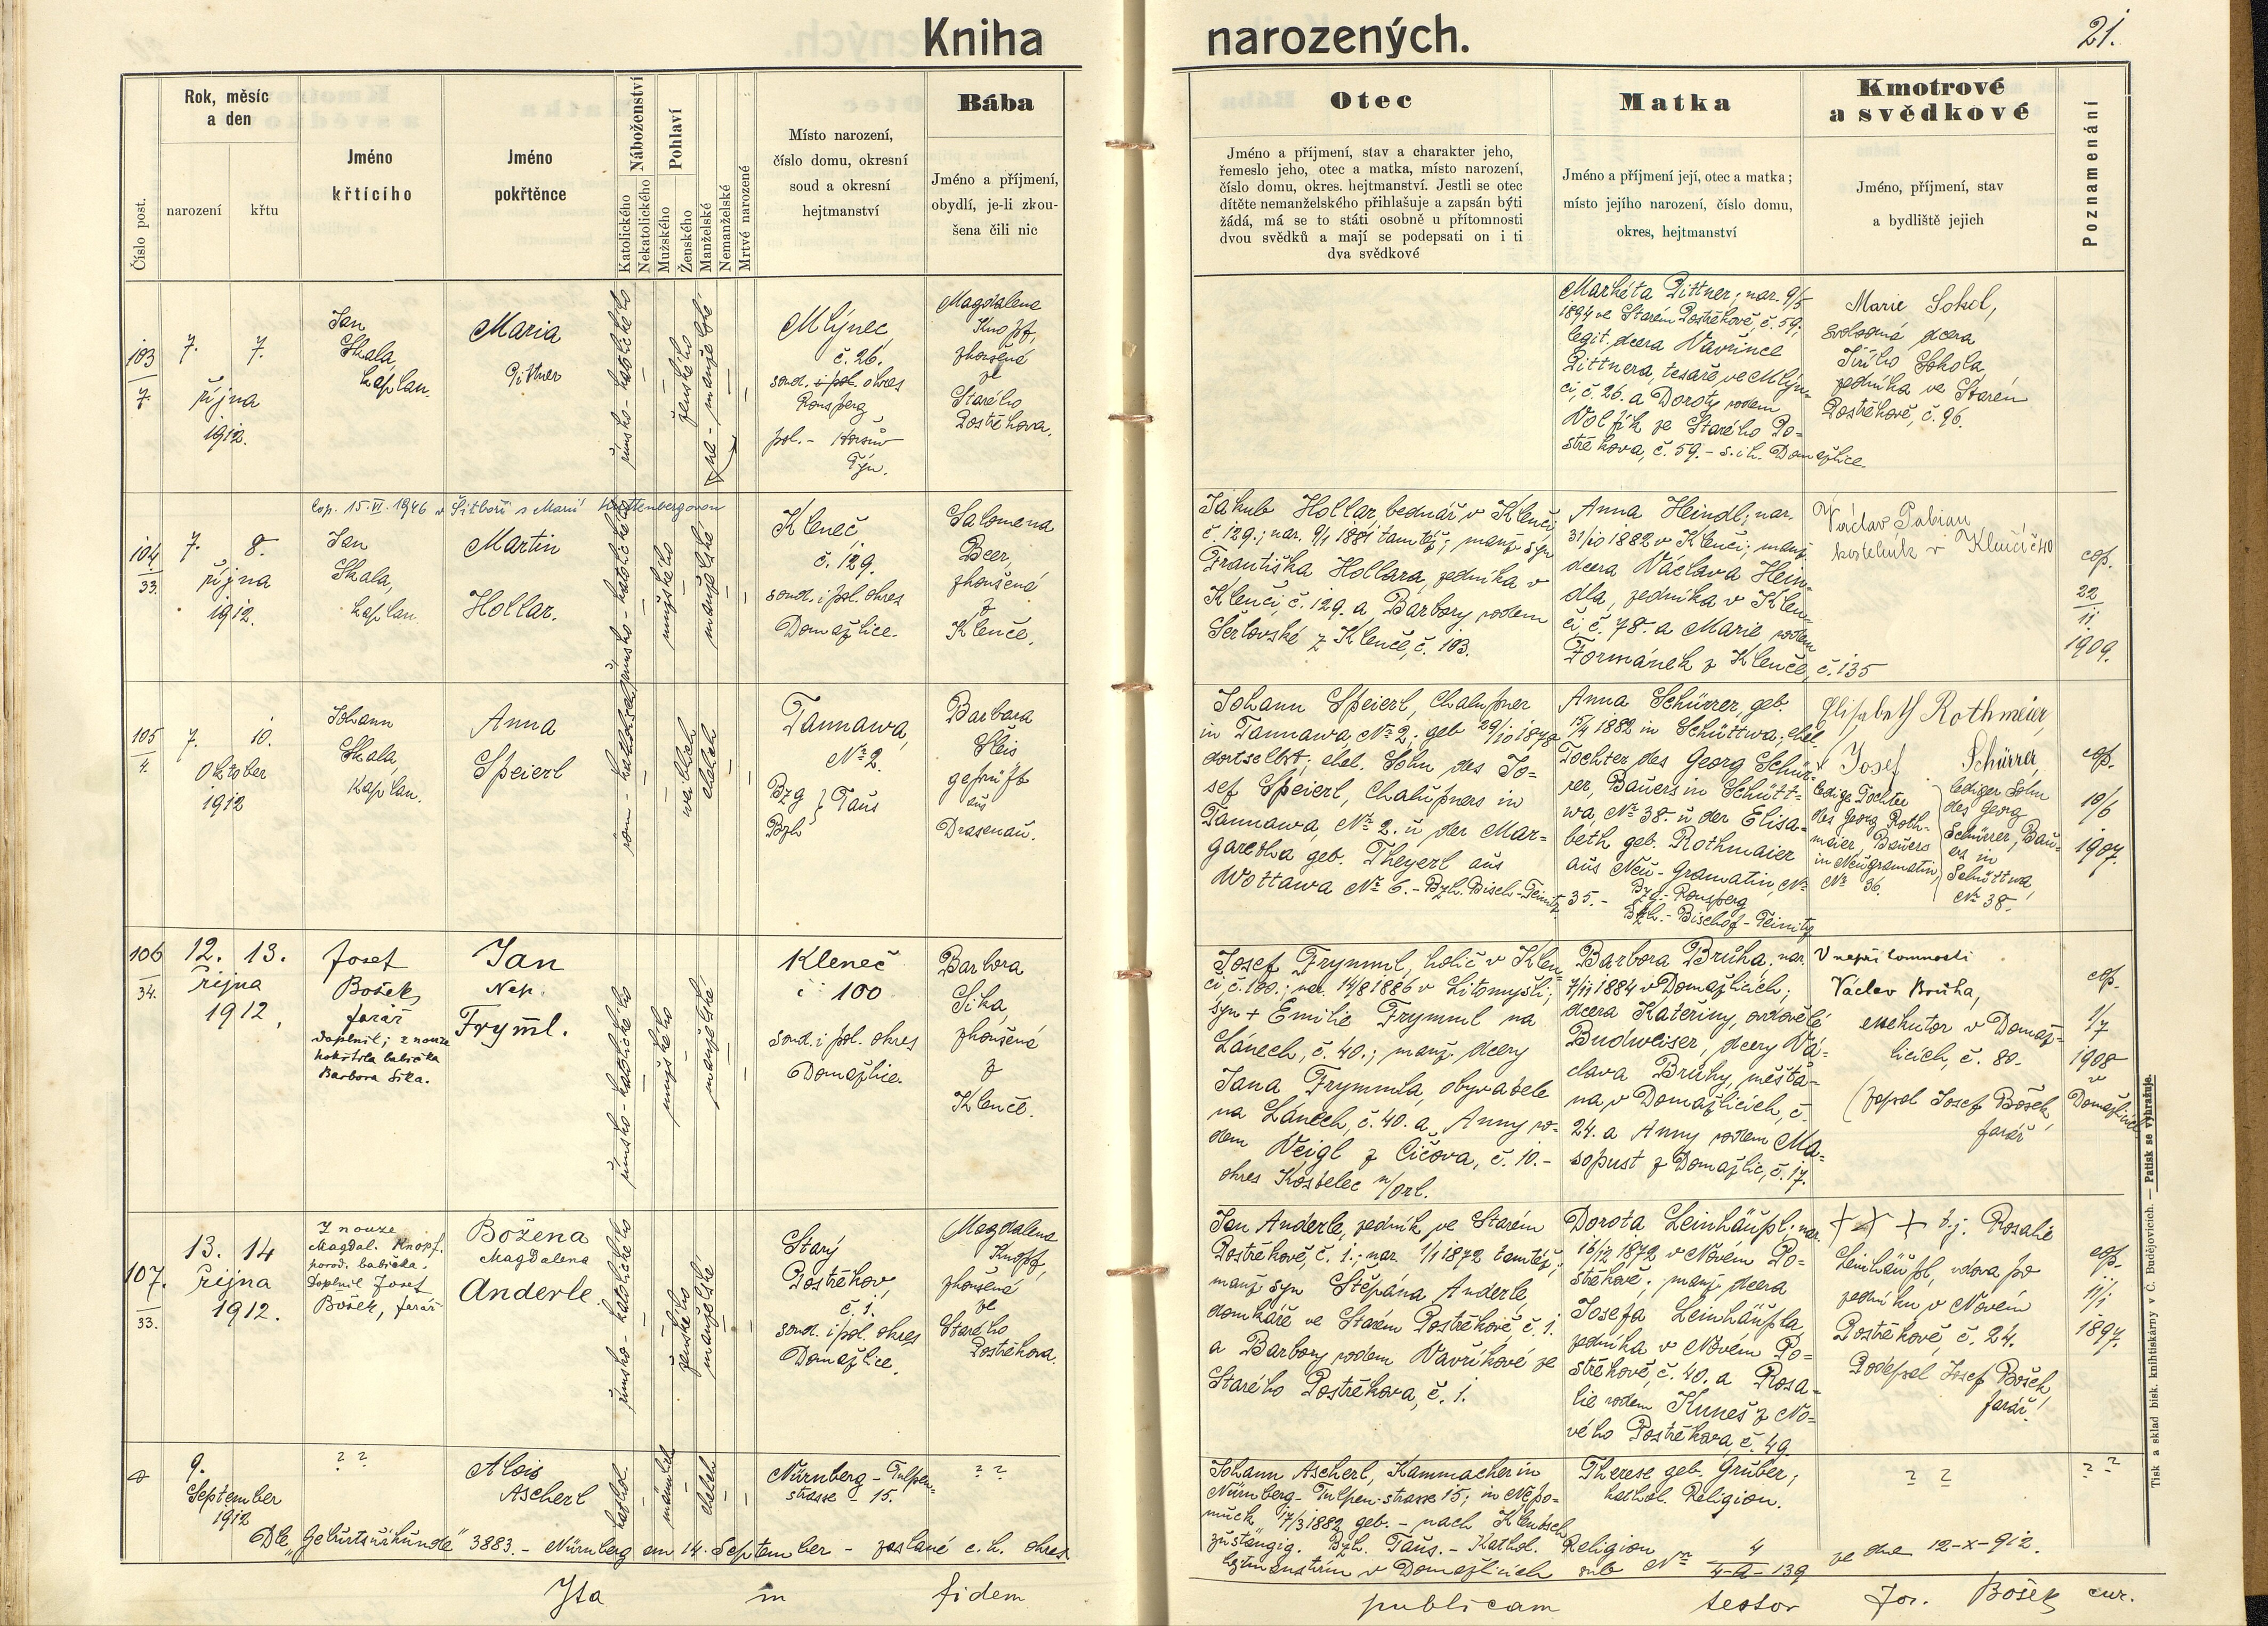 Kniha narozených.
21.
Číslo post.
Rok, měsíc
a den
narození
křtu
Jméno
křtícího
Jméno
pokřtěnce
Náboženství
Katolického
Nekatolického
Pohlaví
Mužského
Ženského
Manželské
Nemanželské
Mrtvě narozené
Místo narození,
číslo domu, okresní
soud a okresní
hejtmanství
Bába
Jméno a příjmení,
obydlí, je-li zkou-
šena čili nic
Otec
Jméno a příjmení, stav a charakter jeho,
řemeslo jeho, otec a matka, místo narození,
číslo domu, okres. hejtmanství. Jestli se otec
dítěte nemanželského přihlašuje a zapsán býti
žádá, má se to státi osobně u přítomnosti
dvou svědků a mají se podepsati on i ti
dva svědkové
Matka
Jméno a příjmení její, otec a matka;
místo jejího narození, číslo domu,
okres, hejtmanství
Kmotrové
a svědkové
Jméno, příjmení, stav
a bydliště jejich
Poznamenání
103
7
7. 7.
října
1912.
Jan
Skala,
kaplan.
Maria
Pittner
římsko-katolického
ženského
ne-manželské
Mlýnec,
č. 26.
soud. i pol. okres
Ronsperg,
pol. - Horšův
Týn.
Magdalena
Knopf,
zkoušená
ze
Starého
Postřekova.
Markéta Pittner; nar. 9/5
1894 ve Starém Postřekově, č. 59;
legit. dcera Vavřince
Pittnera, tesaře, ve Mlýn-
ci, č. 26. a Doroty rodem
Volfík ze Starého Po=
střekova, č. 59. - s. i h. Domažlice.
Marie Sokol,
svobodná dcera
Jiřího Sokola,
zedníka ve Starém
Postřekově, č. 96.
cop. 15. VI. 1946 v Šitboři s Marií Kuttenbergovou
104
33.
7. 8.
října
1912.
Jan
Skala,
kaplan.
Martin
Hollar.
římsko-katolického
mužského
manželské
Kleneč,
č. 129.
soud. i pol. okres
Domažlice.
Salomena
Beer,
zkoušená
z
Klenče.
Jakub Hollar, bednář v Klenči,
č. 129.; nar. 9/1 1881 tamtéž; manž. syn
Františka Hollara, zedníka v
Klenči, č. 129. a Barbory rodem
Šerlovské z Klenče, č. 103.
Anna Heindl; nar.
31/10 1882 v Klenči; manž.
dcera Václava Hein-
dla, zedníka v Klen-
či č. 78. a Marie rodem
Formánek z Klenče, č. 135
Václav Pabian
kostelník v Klenčí č 40
cop.
22
11
1909.
105
4.
7. 10.
Oktober
1912
Johann
Skala,
Kaplan.
Anna
Speierl
röm.-katholisch
weiblich
ehelich
Tannawa,
No 2.
Bzg } Taus
Bzh
Barbara
Sleis
geprüft
aus
Drasenau.
Johann Speierl, Chalupner
in Tannawa, No 2.; geb 29/10 1878
dortselbst; ehel. Sohn des Jo-
sef Speierl, Chalupners in
Tannawa, No 2. u der Mar=
garetha geb. Theyerl aus
Wottawa No 6. - Bzh. Bisch-Teinitz
Anna Schürrer, geb.
15/4 1882 in Schüttwa; ehel.
Tochter des Georg Schür-
rer, Bauers in Schütt=
wa, No 38. u der Elisa-
beth geb. Rothmaier
aus Neu-Gramatin, No
35. - Bzg.-Ronsperg
Bzh.-Bischof-Teinitz
Elisabeth Rothmeier,
Josef Schürrer,
ledige Tochter
des Georg Roth-
maier, Bauers
in Neugramatin,
No 36.
lediger Sohn
des Georg
Schürrer, Bau-
ers in
Schüttwa,
No 38.
cop.
10/6
1907.
106
34.
12. 13.
října
1912,
Josef
Bošek,
farář
doplnil; z nouze
pokřtila babička
Barbora Sika.
Jan
Nep.
Fryml.
římsko-katolického
mužského
manželské
Kleneč
č 100
soud. i pol. okres
Domažlice.
Barbora
Sika,
zkoušená
z
Klenče.
Josef Frymml, holič v Klen-
či č. 100.; nar. 14/8 1886 v Litomyšli;
syn + Emilie Frymml na
Lánech, č. 40.; manž. dcery
Jana Frymmla, obyvatele
na Lánech, č. 40. a Anny ro-
dem Veigl z Čičova, č. 10. -
okres Kostelec n/Orl.
Barbora Bruha, nar.
7/11 1884 v Domažlicích;
dcera Kateřiny, ovdovělé
Budweiser, dcery Vá-
clava Bruhy, měšťa-
na v Domažlicích, č.
24. a Anny rodem Ma-
sopust z Domažlic, č. 17.
V nepřítomnosti
Václav Bruha,
exekutor v Domaž-
licích, č. 80.
(zapsal Josef Bošek,
farář
cop.
1/7
1908
v
Domažlicích
107.
33.
13. 14
října
1912.
Z nouze
Magdal. Knopf.
porod. babička.
Doplnil Josef
Bošek, farář
Božena
Magdalena
Anderle
římsko-katolického
ženského
manželské
Starý
Postřekov,
č. 1.
soud. i pol. okres
Domažlice.
Magdalena
Knopf,
zkoušená
ze
Starého
Postřekova.
Jan Anderle, zedník, ve Starém
Postřekově, č. 1.; nar. 1/1 1872 tamtéž;
manž. syn Štěpána Anderle,
domkáře ve Starém Postřekově, č. 1.
a Barbory rodem Vavříkové ze
Starého Postřekova, č. 1.
Dorota Leinhäupl; nar.
16/12 1872 v Novém Po-
střekově; manž. dcera
Josefa Leinhäupla,
zedníka v Novém Po=
střekově, č. 40. a Rosa-
lie rodem Kuneš z No=
vého Postřekova, č. 49.
+++ t.j. Rosalie
Leinhäupl, vdova po
zedníku v Novém
Postřekově, č. 24.
Podepsal Josef Bošek,
farář.
cop.
11/1
1897.
9.
September
1912
? ?
Alois
Ascherl
kathol.
männlich
ehelich
Nürnberg - Tulpen-
strasse - 15.
? ?
Johann Ascherl, Kammacher in
Nürnberg - Tulpen-strasse 15; in Nepo=
muck 17/3 1882 geb. - nach Klentsch
zuständig. Bzh. Taus. - Kathol. Religion
Therese geb. Gruber;
kathol. Religion.
? ?
? ?
Dle „Geburtsurkunde" 3883. - Nürnberg am 14. September - zaslané c. k. okres.
hejtmanstvím v Domažlicích sub No 139 ze dne 12-X-912.
Ita in fidem publicam testor Jos. Bošek cur.
Tisk a sklad bisk. knihtiskárny v Č. Budějovicích. — Patisk se vyhražuje.